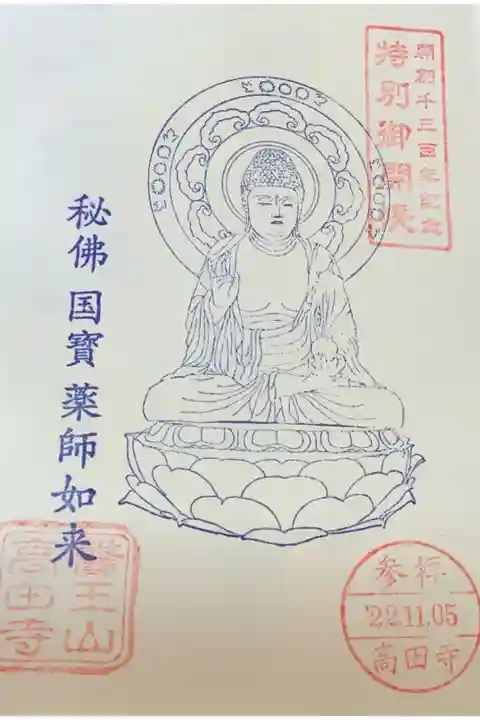 開創千三百年記念
特別御開帳
秘佛国寳薬師如来
醫王山
高田寺
参拝
'22.11.05
高田寺